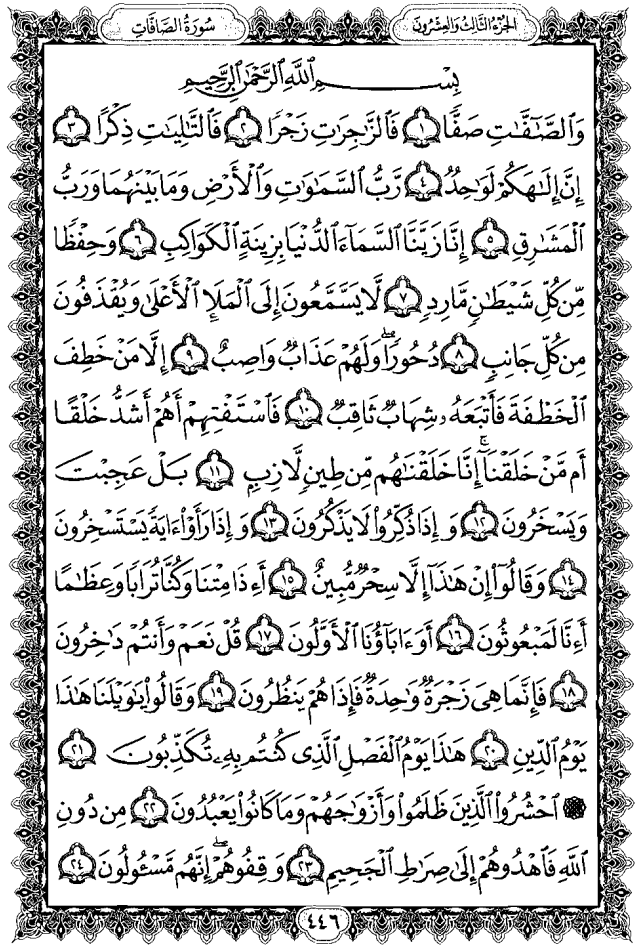 الجزء الثالث والعشرون
سورة الصافات
بِسْمِ اللَّهِ الرَّحْمَٰنِ الرَّحِيمِ
وَالصَّافَّاتِ صَفًّا ١ فَالزَّاجِرَاتِ زَجْرًا ٢ فَالتَّالِيَاتِ ذِكْرًا ٣
إِنَّ إِلَٰهَكُمْ لَوَاحِدٌ ٤ رَّبُّ السَّمَاوَاتِ وَالْأَرْضِ وَمَا بَيْنَهُمَا وَرَبُّ
الْمَشَارِقِ ٥ إِنَّا زَيَّنَّا السَّمَاءَ الدُّنْيَا بِزِينَةٍ الْكَوَاكِبِ ٦ وَحِفْظًا
مِّن كُلِّ شَيْطَانٍ مَّارِدٍ ٧ لَّا يَسَّمَّعُونَ إِلَى الْمَلَإِ الْأَعْلَىٰ وَيُقْذَفُونَ
مِن كُلِّ جَانِبٍ ٨ دُحُورًا ۖ وَلَهُمْ عَذَابٌ وَاصِبٌ ٩ إِلَّا مَنْ خَطِفَ
الْخَطْفَةَ فَأَتْبَعَهُ شِهَابٌ ثَاقِبٌ ١٠ فَاسْتَفْتِهِمْ أَهُمْ أَشَدُّ خَلْقًا
أَم مَّنْ خَلَقْنَا ۚ إِنَّا خَلَقْنَاهُم مِّن طِينٍ لَّازِبٍ ١١ بَلْ عَجِبْتَ
وَيَسْخَرُونَ ١٢ وَإِذَا ذُكِّرُوا لَا يَذْكُرُونَ ١٣ وَإِذَا رَأَوْا آيَةً يَسْتَسْخِرُونَ
١٤ وَقَالُوا إِنْ هَٰذَا إِلَّا سِحْرٌ مُّبِينٌ ١٥ أَءِذَا مِتْنَا وَكُنَّا تُرَابًا وَعِظَامًا
أَءِنَّا لَمَبْعُوثُونَ ١٦ أَوَآبَاؤُنَا الْأَوَّلُونَ ١٧ قُلْ نَعَمْ وَأَنتُمْ دَاخِرُونَ
١٨ فَإِنَّمَا هِيَ زَجْرَةٌ وَاحِدَةٌ فَإِذَا هُمْ يَنظُرُونَ ١٩ وَقَالُوا يَا وَيْلَنَا هَٰذَا
يَوْمُ الدِّينِ ٢٠ هَٰذَا يَوْمُ الْفَصْلِ الَّذِي كُنتُم بِهِ تُكَذِّبُونَ ٢١
۞ احْشُرُوا الَّذِينَ ظَلَمُوا وَأَزْوَاجَهُمْ وَمَا كَانُوا يَعْبُدُونَ ٢٢ مِن دُونِ
اللَّهِ فَاهْدُوهُمْ إِلَىٰ صِرَاطِ الْجَحِيمِ ٢٣ وَقِفُوهُمْ ۖ إِنَّهُم مَّسْئُولُونَ ٢٤
٤٤٦